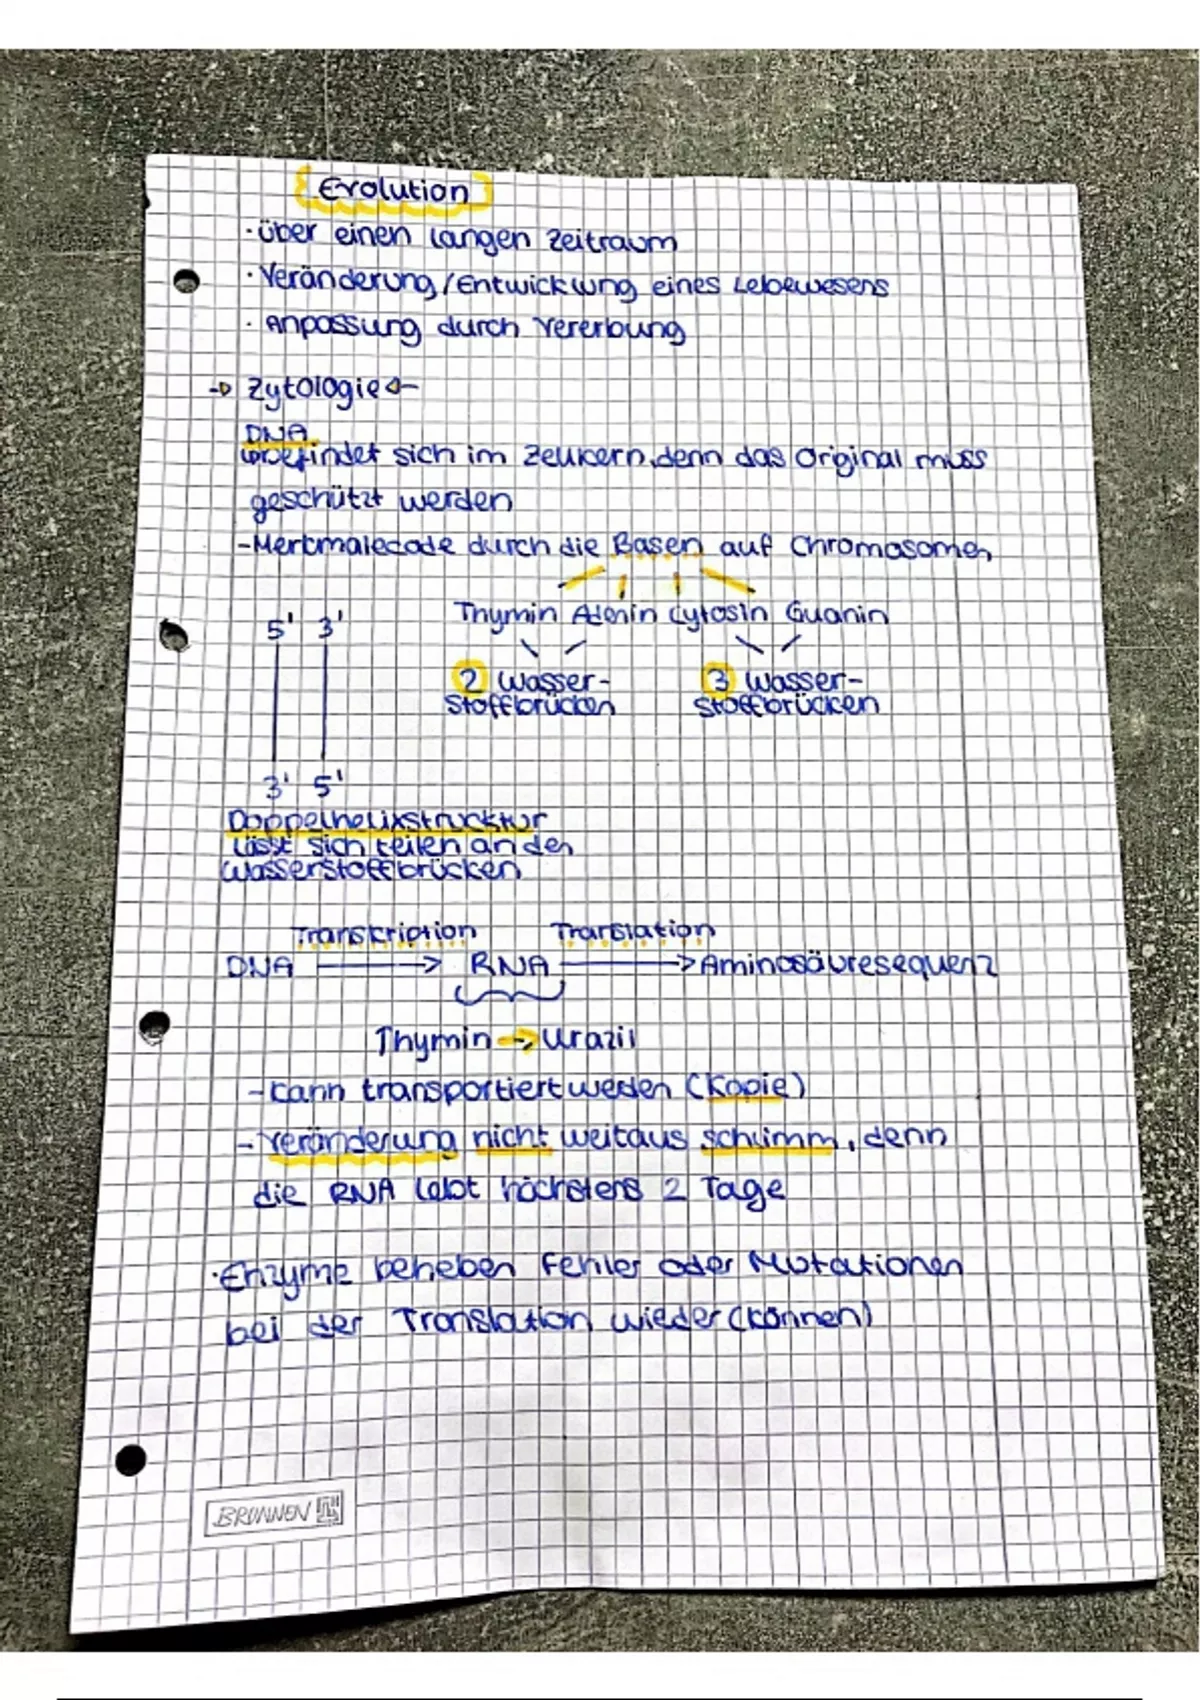 Evolution
· über einen langen Zeitraum
· Veränderung/Entwicklung eines Lebewesens
· Anpassung durch Vererbung
→ Zytologie ←
DNA
befindet sich im Zellkern, denn das Original muss
geschützt werden
- Merkmalecode durch die Basen auf Chromosomen
Thymin Adenin Cytosin Guanin
5' 3'
2 Wasser- 3 Wasser-
stoffbrücken stoffbrücken
3' 5'
Doppelhelixstrucktur
lässt sich teilen an den
Wasserstoffbrücken
Transkription Translation
DNA → RNA → Aminosäuresequenz
Thymin → Urazil
- kann transportiert werden (Kopie)
- Veränderung nicht weitaus schlimm, denn
die RNA lebt höchstens 2 Tage
· Enzyme beheben Fehler oder Mutationen
bei der Translation wieder (können)
BRUNNEN